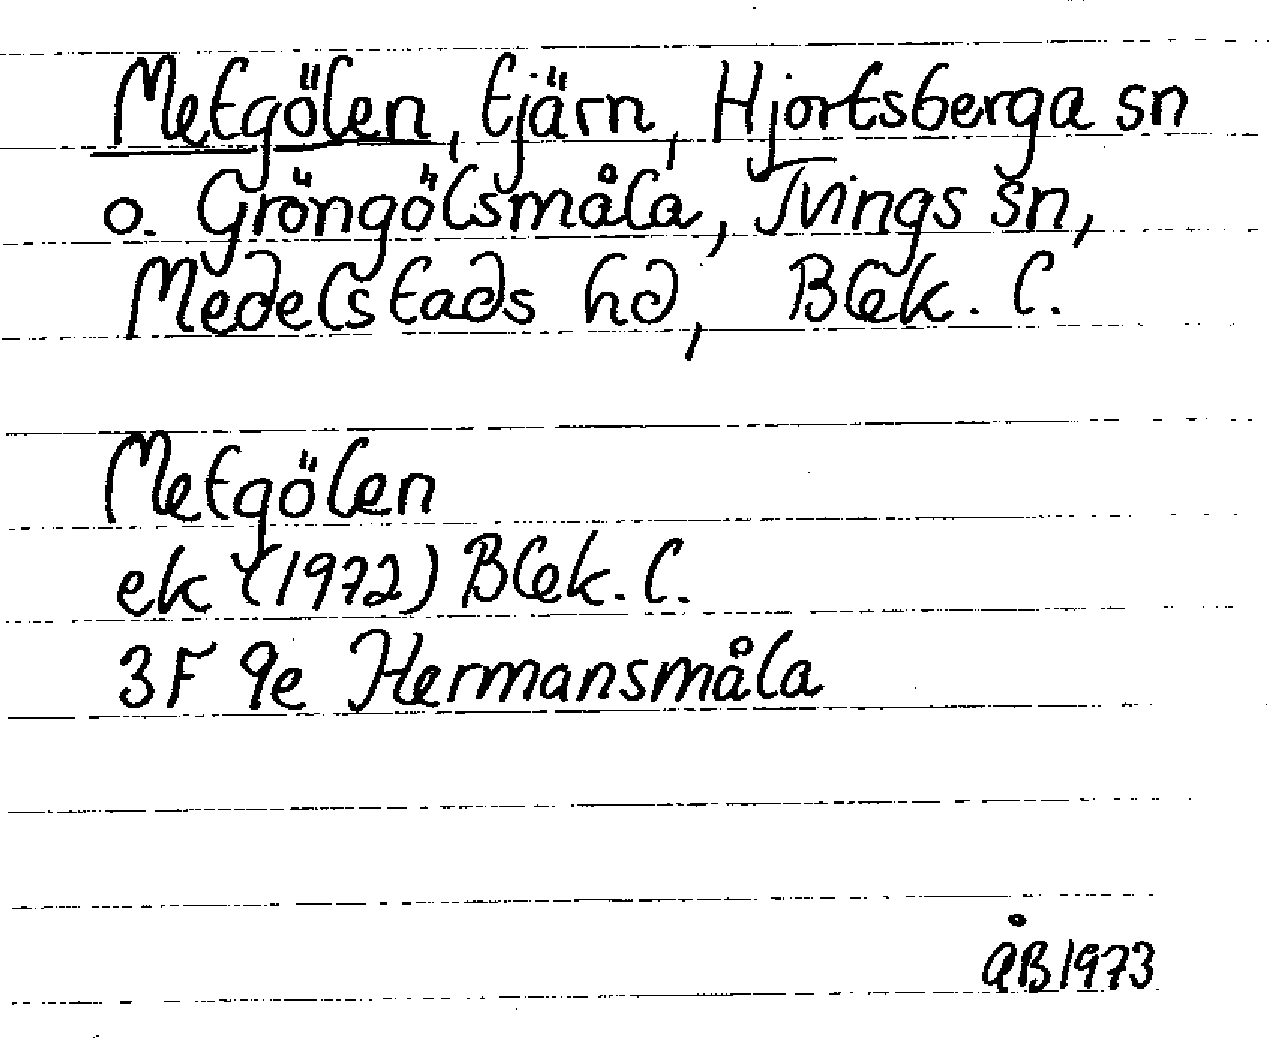 Metgölen, tjärn, Hjortsberga sn
o. Gröngölsmåla, Tvings sn,
Medelstads hd, Blek. l.
Metgölen
ek (1972) Blek. l.
3F 9e Hermansmåla
ÅB 1973